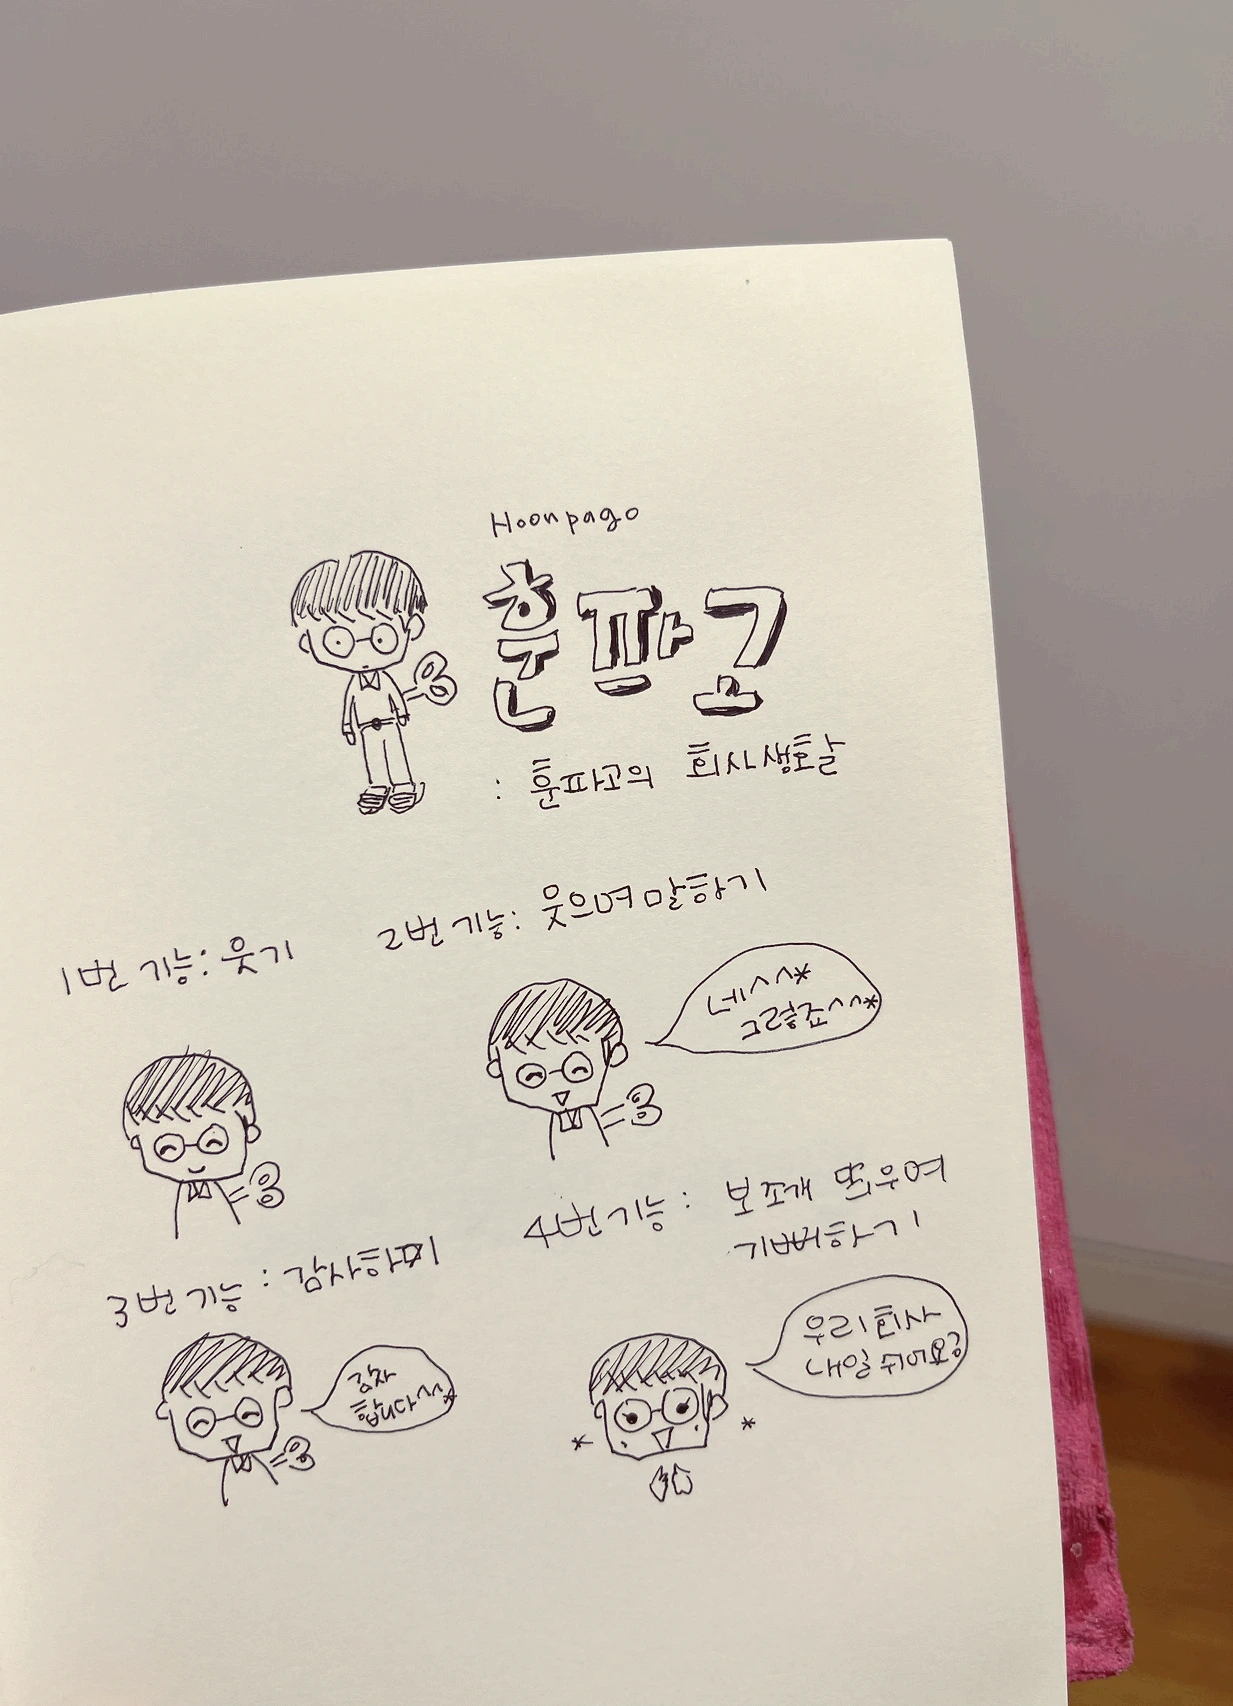 Hoonpago
훈파고
: 훈파고의 회사생활
1번 기능: 웃기
2번 기능: 웃으며 말하기
네^^*
그렇죠^^*
3번 기능: 감사하며
감사
합니다^^*
4번 기능: 보조개 띄우며
기뻐하기
우리회사
내일 쉬어요?